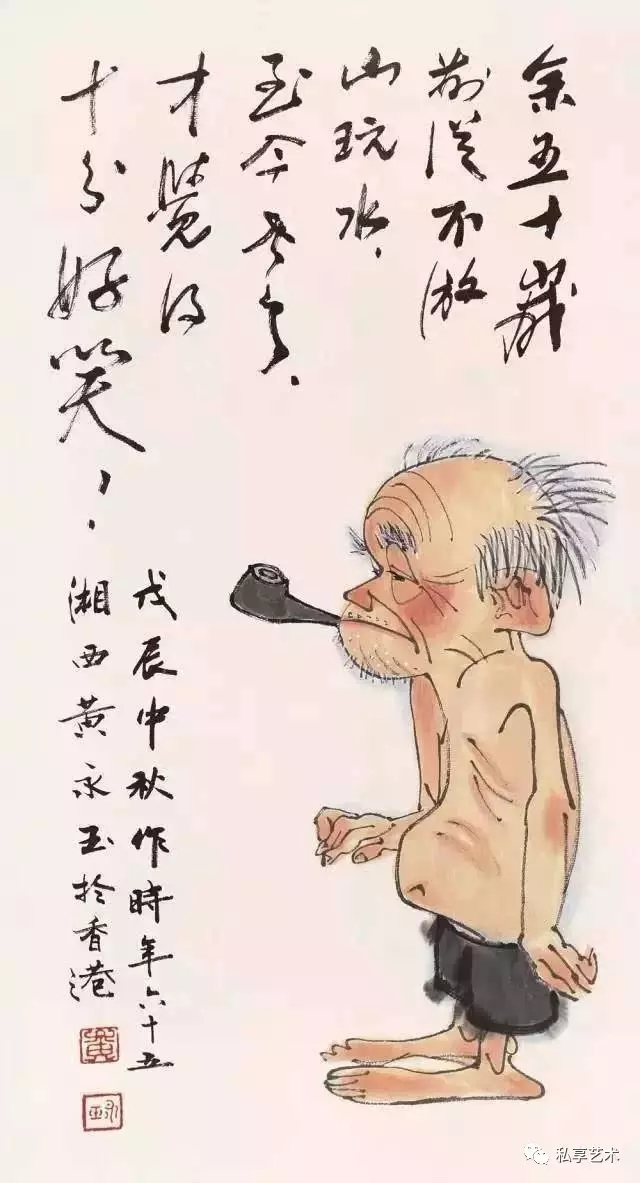 余五十歲
前從不游
山玩水、
至今老矣、
才覺得
十分好笑！
戊辰中秋作時年六十五
湘西黃永玉於香港
黃
永玉
私享艺术